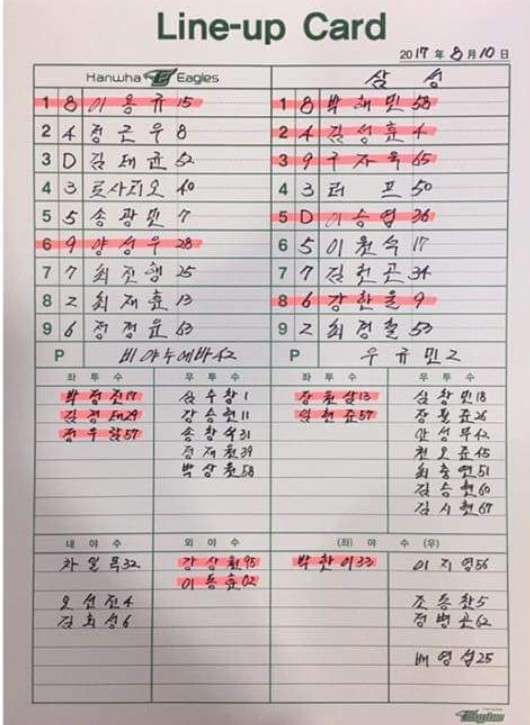 Line-up Card
2017 年 8 月 10 日
Hanwha Eagles 삼 성
1 8 이용규 15 1 8 박해민 58
2 4 정근우 8 2 4 김성훈 4
3 D 김태균 52 3 9 구자욱 65
4 3 로사리오 40 4 3 러프 50
5 5 송광민 7 5 D 이승엽 36
6 9 양성우 28 6 5 이원석 17
7 7 최진행 25 7 7 김헌곤 34
8 2 최재훈 13 8 6 강한울 9
9 6 정경운 63 9 2 최경철 53
P 비야누에바 42 P 우규민 2
좌 투 수 우 투 수 좌 투 수 우 투 수
박정진 17 심수창 1 장원삼 13 심창민 18
김경태 29 강승현 11 임현준 57 장필준 26
정우람 57 송창식 31 안성무 42
정재원 39 권오준 45
박상원 58 최충연 51
김승현 60
김시현 67
내 야 수 외 야 수 (좌) 야 수 (우)
차일목 32 강상원 95 박한이 33 이지영 56
이동훈 02
오선진 4 조동찬 5
김회성 6 정병곤 62
배영섭 25
Eagles